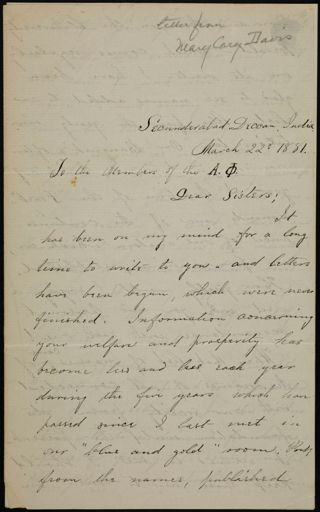 Letter from
Mary Carey Davis
Secunderabad Deccan, India
March 22d 1881.
To the Members of the A. Φ
Dear Sisters;
It
has been on my mind for a long
time to write to you - and letters
have been begun, which were never
finished. Information concerning
your welfare and prosperity has
become less and less each year
during the five years which have
passed since I last met in
our "blue and gold" room.
from the names, published